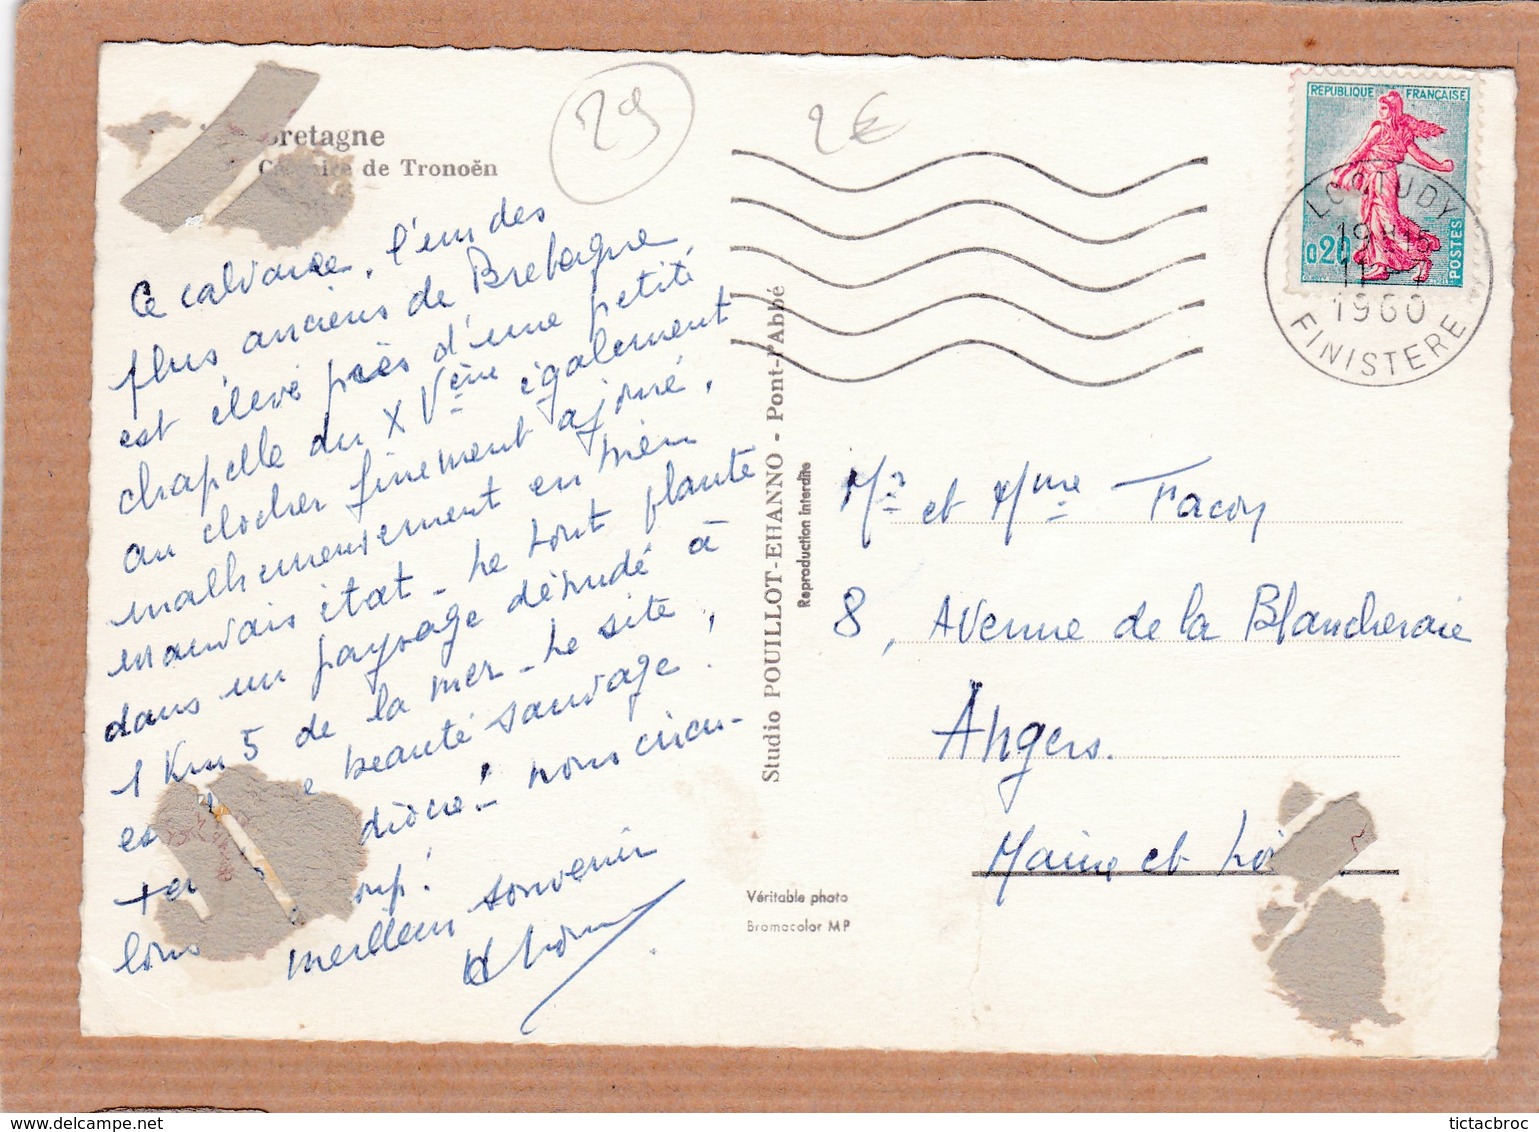 Bretagne
Calvaire de Tronoën
29
2€
REPUBLIQUE FRANÇAISE
0,20
POSTES
LOCTUDY
19 H 15
11
1960
FINISTERE
Ce calvaire, l'un des
plus anciens de Bretagne,
est élevé près d'une petite
chapelle du XVème également
au clocher finement ajouré,
malheureusement en bien
mauvais état - Le tout planté
dans un paysage dénudé à
1 Km 5 de la mer - Le site,
beauté sauvage.
nous circu-
meilleur souvenir
Studio POUILLOT-EHANNO - Pont-l'Abbé
Reproduction interdite
Véritable photo
Bromocolor MP
Mr et Mme Facon
8, Avenue de la Blancheraie
Angers.
Maine et Loi
tictacbroc